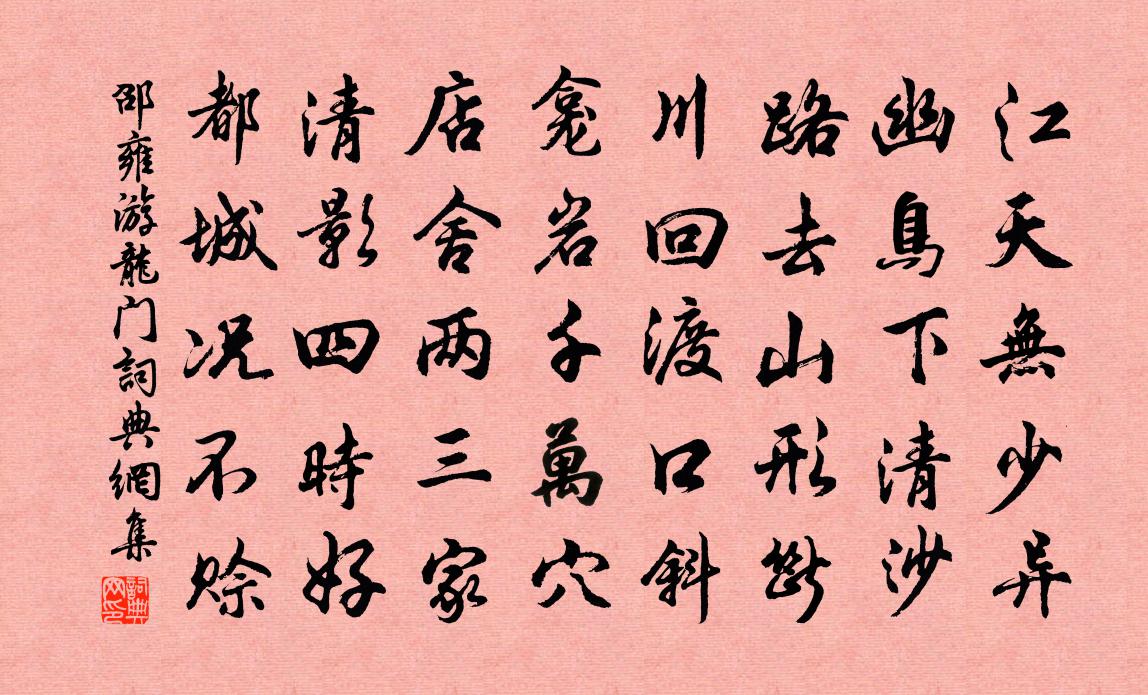 江天無少异
幽鳥下清沙
路去山形斷
川回渡口斜
龛岩千萬穴
店舍两三家
清影四時好
都城况不赊
邵雍游龍门詞典網集
詞典网印